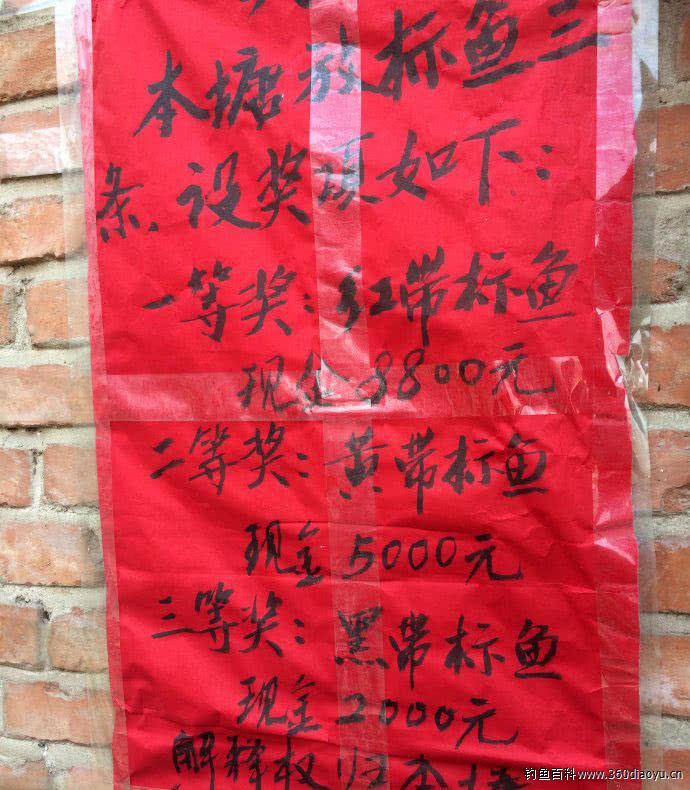 本塘放标鱼三
条.设奖项如下:
一等奖:红带标鱼
现金8800元
二等奖:黄带标鱼
现金5000元
三等奖:黑带标鱼
现金2000元
解释权归本塘
钓鱼百科www.360diaoyu.cn